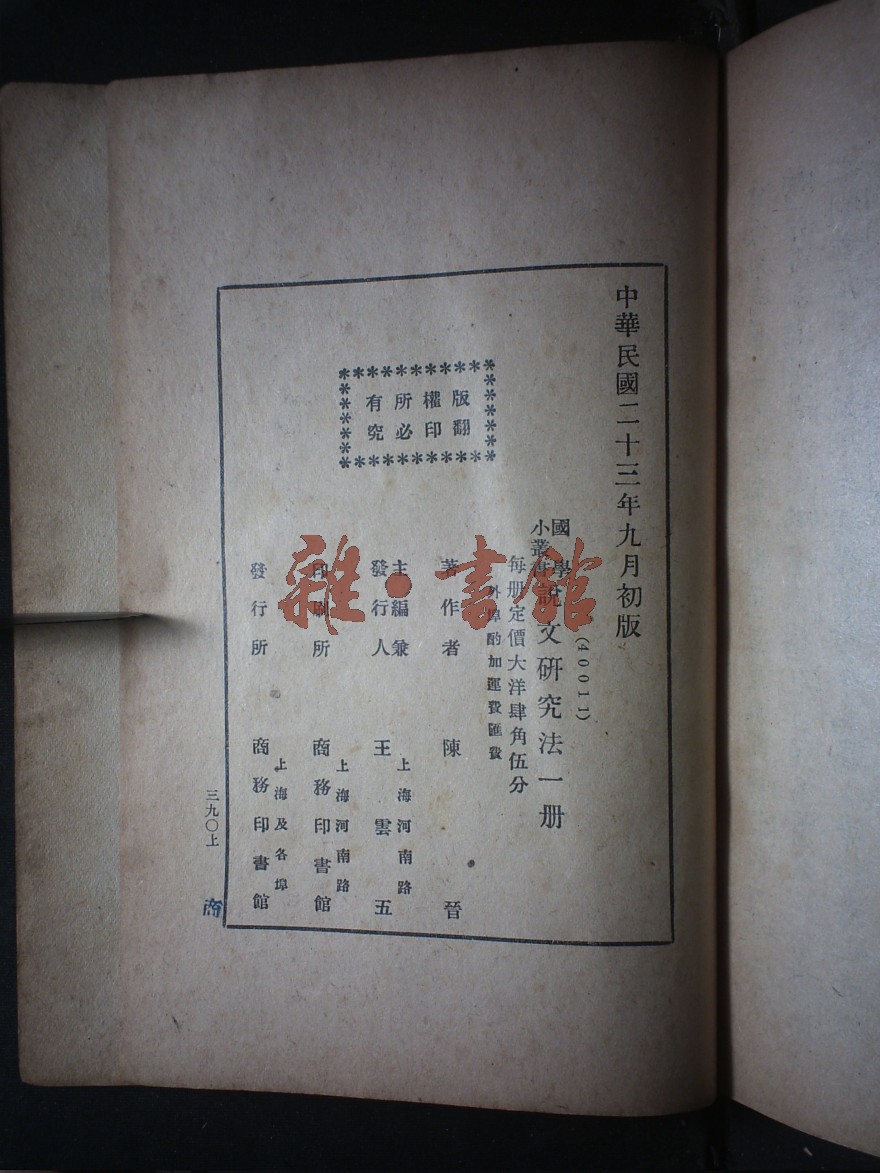 中華民國二十三年九月初版
(40011)
國學
小叢書
說文研究法一册
每册定價大洋肆角伍分
外埠酌加運費匯費
版權所有
翻印必究
著作者 陳晉
主編兼
發行人 王雲五
上海河南路
印刷所 商務印書館
上海河南路
發行所 商務印書館
上海及各埠
三九〇上
商
雜·書館